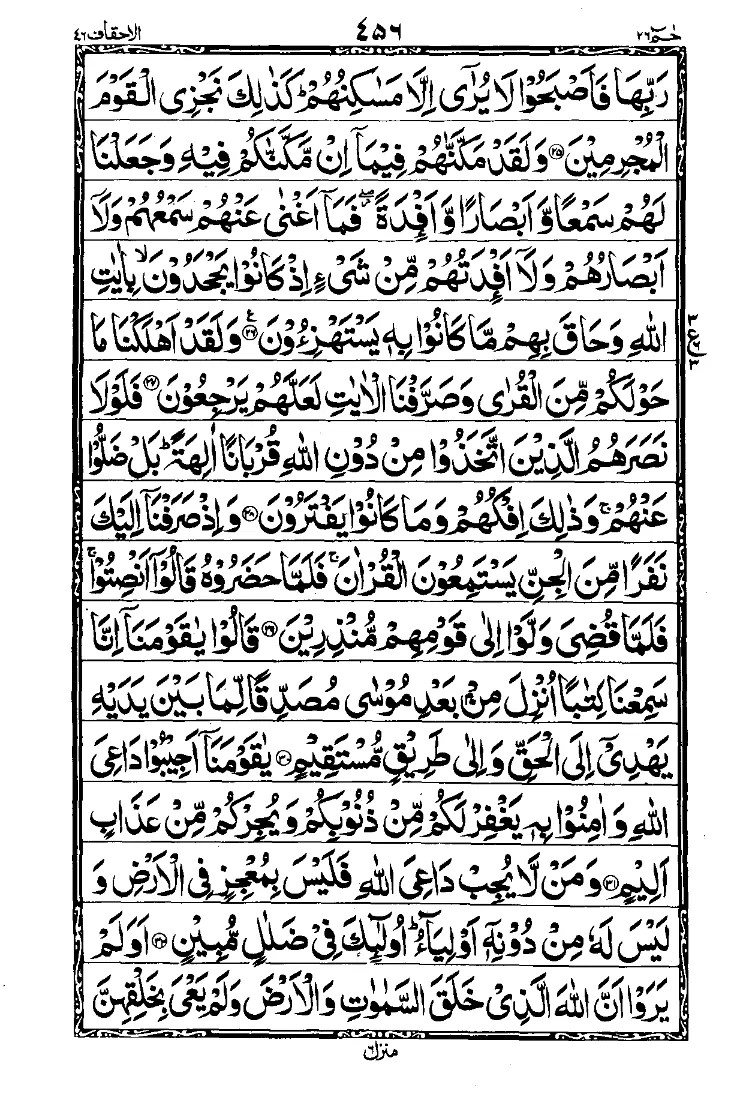 الاحقاف ٤٦ ٤٥٦ حٰمٓ ٢٦
رَبِّهَا فَاَصْبَحُوْا لَا يُرٰٓى اِلَّا مَسٰكِنُهُمْ ؕ كَذٰلِكَ نَجْزِى الْقَوْمَ
الْمُجْرِمِيْنَ ﴿۲۵﴾ وَلَقَدْ مَكَّنّٰهُمْ فِيْمَاۤ اِنْ مَّكَّنّٰكُمْ فِيْهِ وَجَعَلْنَا
لَهُمْ سَمْعًا وَّ اَبْصَارًا وَّ اَفْـِٕدَةً ۖ فَمَاۤ اَغْنٰى عَنْهُمْ سَمْعُهُمْ وَلَاۤ
اَبْصَارُهُمْ وَلَاۤ اَفْـِٕدَتُهُمْ مِّنْ شَىْءٍ اِذْ كَانُوْا يَجْحَدُوْنَ ۙ بِاٰيٰتِ
اللّٰهِ وَحَاقَ بِهِمْ مَّا كَانُوْا بِهٖ يَسْتَهْزِءُوْنَ ﴿۲۶﴾ وَلَقَدْ اَهْلَكْنَا مَا
حَوْلَكُمْ مِّنَ الْقُرٰى وَصَرَّفْنَا الْاٰيٰتِ لَعَلَّهُمْ يَرْجِعُوْنَ ﴿۲۷﴾ فَلَوْلَا
نَصَرَهُمُ الَّذِيْنَ اتَّخَذُوْا مِنْ دُوْنِ اللّٰهِ قُرْبَانًا اٰلِهَةً ؕ بَلْ ضَلُّوْا
عَنْهُمْ ۚ وَذٰلِكَ اِفْكُهُمْ وَمَا كَانُوْا يَفْتَرُوْنَ ﴿۲۸﴾ وَاِذْ صَرَفْنَاۤ اِلَيْكَ
نَفَرًا مِّنَ الْجِنِّ يَسْتَمِعُوْنَ الْقُرْاٰنَ ۚ فَلَمَّا حَضَرُوْهُ قَالُوْۤا اَنْصِتُوْا ۚ
فَلَمَّا قُضِىَ وَلَّوْا اِلٰى قَوْمِهِمْ مُّنْذِرِيْنَ ﴿۲۹﴾ قَالُوْا يٰقَوْمَنَاۤ اِنَّا
سَمِعْنَا كِتٰبًا اُنْزِلَ مِنْۢ بَعْدِ مُوْسٰى مُصَدِّقًا لِّمَا بَيْنَ يَدَيْهِ
يَهْدِىْۤ اِلَى الْحَقِّ وَاِلٰى طَرِيْقٍ مُّسْتَقِيْمٍ ﴿۳۰﴾ يٰقَوْمَنَاۤ اَجِيْبُوْا دَاعِىَ
اللّٰهِ وَ اٰمِنُوْا بِهٖ يَغْفِرْ لَكُمْ مِّنْ ذُنُوْبِكُمْ وَيُجِرْكُمْ مِّنْ عَذَابٍ
اَلِيْمٍ ﴿۳۱﴾ وَمَنْ لَّا يُجِبْ دَاعِىَ اللّٰهِ فَلَيْسَ بِمُعْجِزٍ فِى الْاَرْضِ وَ
لَيْسَ لَهٗ مِنْ دُوْنِهٖۤ اَوْلِيَآءُ ؕ اُولٰٓئِكَ فِىْ ضَلٰلٍ مُّبِيْنٍ ﴿۳۲﴾ اَوَلَمْ
يَرَوْا اَنَّ اللّٰهَ الَّذِىْ خَلَقَ السَّمٰوٰتِ وَالْاَرْضَ وَلَمْ يَعْىَ بِخَلْقِهِنَّ
منزل ٦